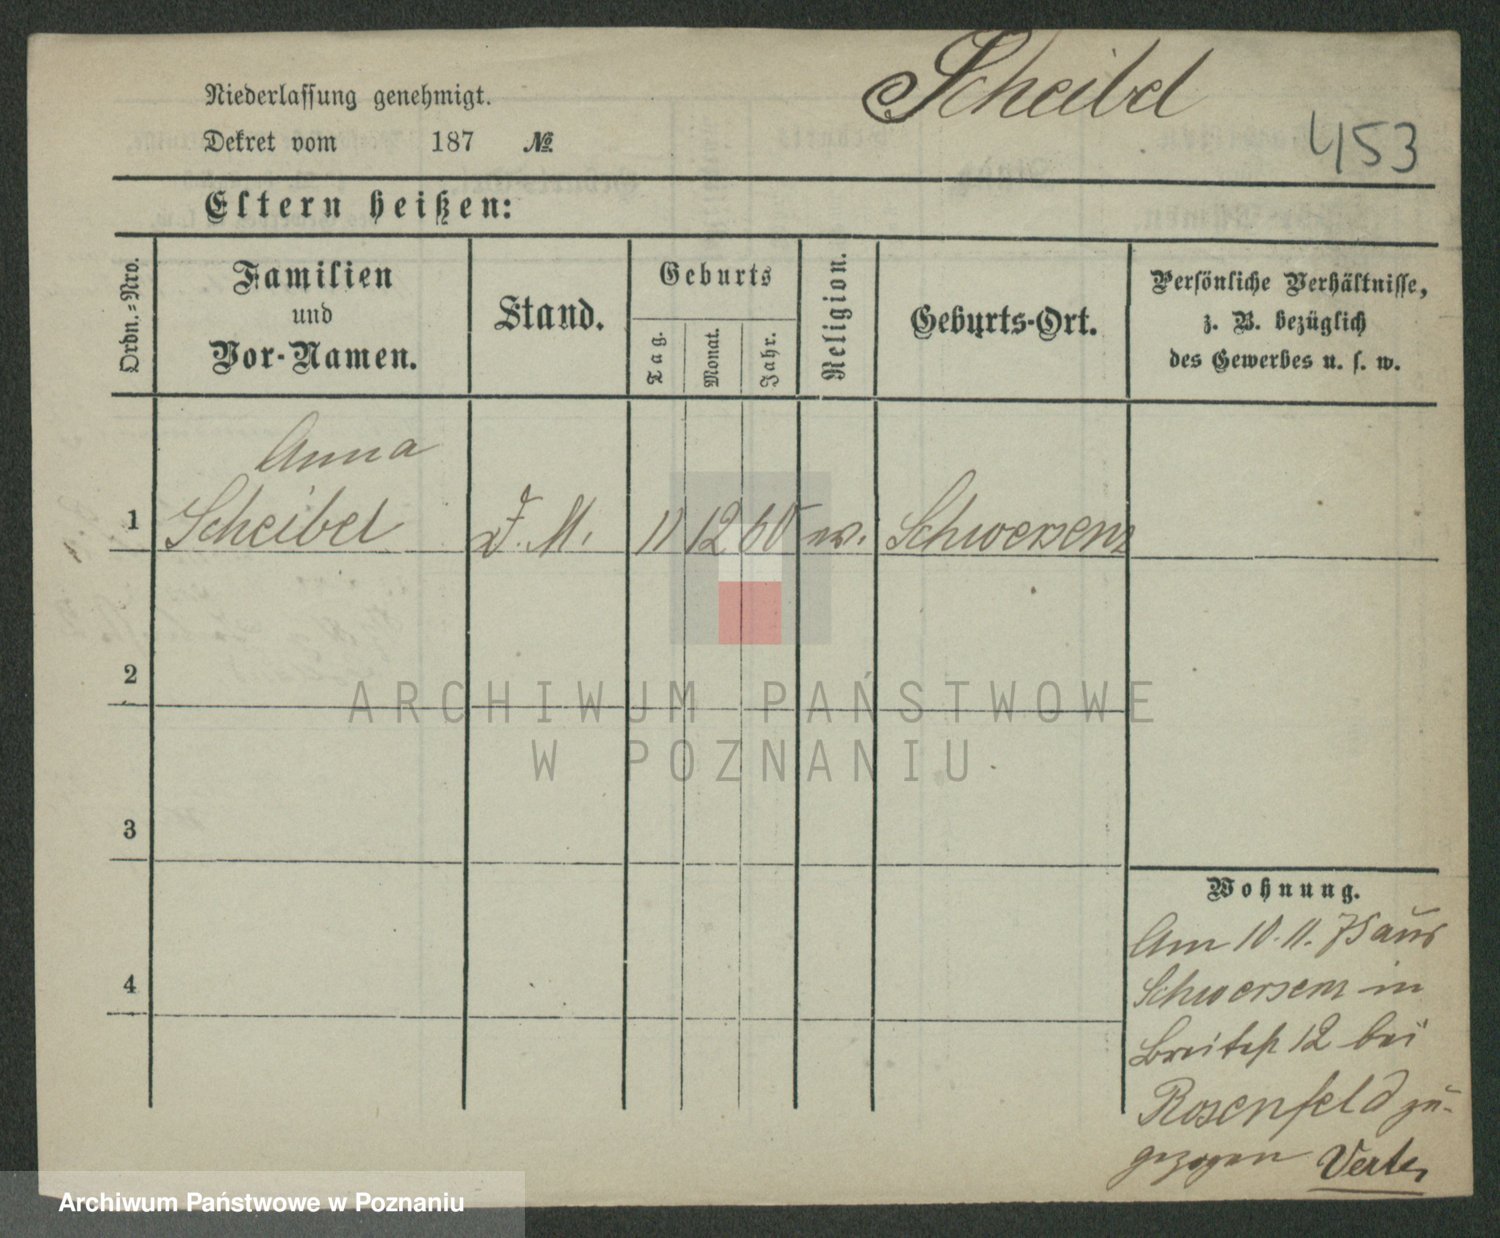 Scheibel
453
Niederlassung genehmigt.
Dekret vom 187 №
Eltern heißen:
Ordn.-Nro.
Familien
und
Vor-Namen.
Stand.
Geburts
Tag.
Monat.
Jahr.
Religion.
Geburts-Ort.
Persönliche Verhältnisse,
z. B. bezüglich
des Gewerbes u. s. w.
Anna
1 Scheibel D. M. 11 12 60 ev. Schwersenz
2
3
4
Wohnung.
Am 10. 11. 75 aus
Schwersenz in
Breitestr 12 bei
Rosenfeld zu-
gezogen Verte
ARCHIWUM PAŃSTWOWE
W POZNANIU
Archiwum Państwowe w Poznaniu